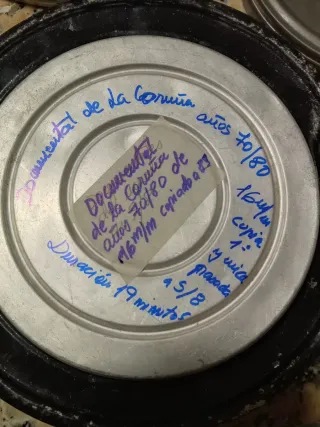 Documental de La Coruña años 70/80 16 m/m
copia
1ª
y unica
pasada
a S/8
Duración 19 minutos
Documental
de la Coruña
años 70/80 de
16 m/m copiado a